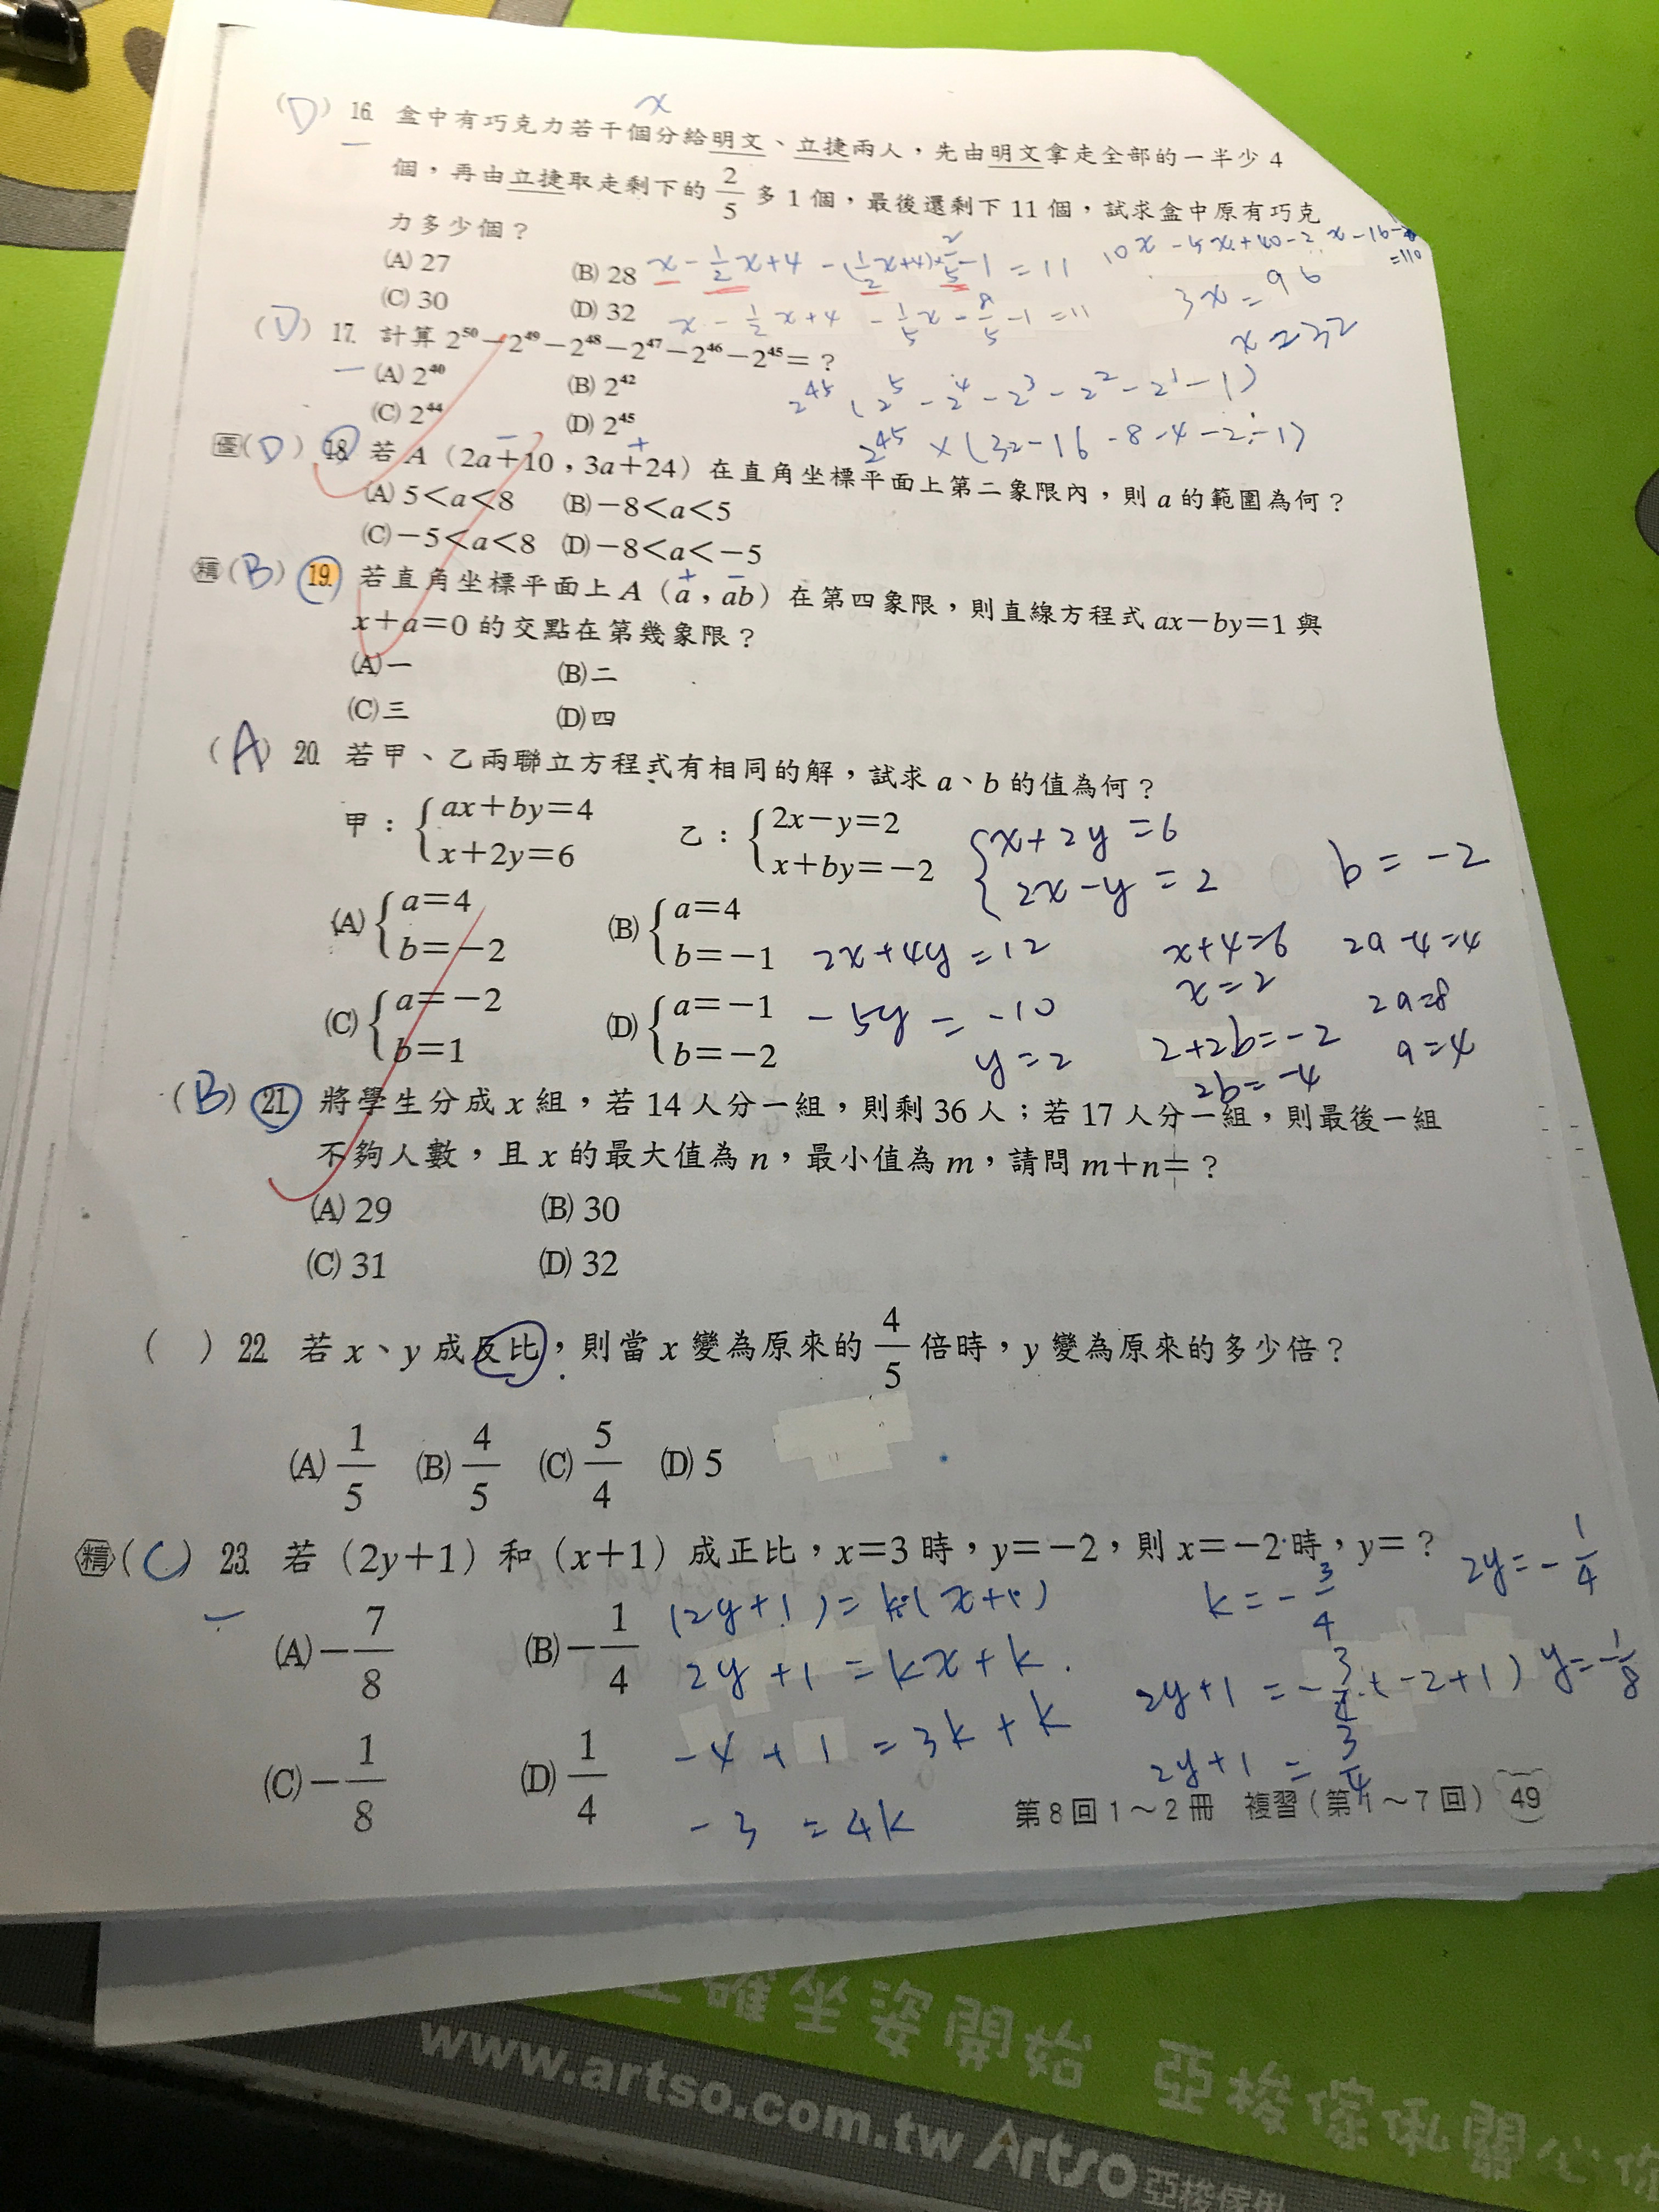 x
(D) 16. 盒中有巧克力若干個分給明文、立捷兩人，先由明文拿走全部的一半少 4
個，再由立捷取走剩下的 2/5 多 1 個，最後還剩下 11 個，試求盒中原有巧克
力多少個？
(A) 27 (B) 28
(C) 30 (D) 32
x - 1/2x + 4 - (1/2x+4)×2/5 - 1 = 11
x - 1/2x + 4 - 1/5x - 8/5 - 1 = 11
3x = 96
x = 32
(D) 17. 計算 2⁵⁰－2⁴⁹－2⁴⁸－2⁴⁷－2⁴⁶－2⁴⁵＝？
(A) 2⁴⁰ (B) 2⁴²
(C) 2⁴⁴ (D) 2⁴⁵
2⁴⁵ (2⁵ - 2⁴ - 2³ - 2² - 2¹ - 1)
2⁴⁵ × (32-16-8-4-2-1)
優(D) 18. 若 A（2a＋10，3a＋24）在直角坐標平面上第二象限內，則 a 的範圍為何？
－ ＋
(A) 5＜a＜8 (B)－8＜a＜5
(C)－5＜a＜8 (D)－8＜a＜－5
精(B) 19. 若直角坐標平面上 A（a，ab）在第四象限，則直線方程式 ax－by＝1 與
＋ －
x＋a＝0 的交點在第幾象限？
(A) 一 (B) 二
(C) 三 (D) 四
(A) 20. 若甲、乙兩聯立方程式有相同的解，試求 a、b 的值為何？
甲：{ax＋by＝4 乙：{2x－y＝2
x＋2y＝6 x＋by＝－2
(A) {a＝4 (B) {a＝4
b＝－2 b＝－1
(C) {a＝－2 (D) {a＝－1
b＝1 b＝－2
{x+2y=6
2x-y=2
2x+4y=12
-5y=-10
y=2
x+4=6
x=2
2+2b=-2
2b=-4
b=-2
2a-4=4
2a=8
a=4
(B) 21. 將學生分成 x 組，若 14 人分一組，則剩 36 人；若 17 人分一組，則最後一組
不夠人數，且 x 的最大值為 n，最小值為 m，請問 m＋n＝？
(A) 29 (B) 30
(C) 31 (D) 32
( ) 22. 若 x、y 成反比，則當 x 變為原來的 4/5 倍時，y 變為原來的多少倍？
(A) 1/5 (B) 4/5 (C) 5/4 (D) 5
精(C) 23. 若（2y＋1）和（x＋1）成正比，x＝3 時，y＝－2，則 x＝－2 時，y＝？
(A)－7/8 (B)－1/4
(C)－1/8 (D) 1/4
(2y+1)=k(x+1)
2y+1=kx+k
-4+1=3k+k
-3=4k
k=-3/4
2y+1=-3/4(-2+1)
2y+1=3/4
2y=-1/4
y=-1/8
第8回1～2冊 複習(第1～7回) 49
確坐姿開始 亞梭傢俬關心你
www.artso.com.tw Artso 亞梭傢俬